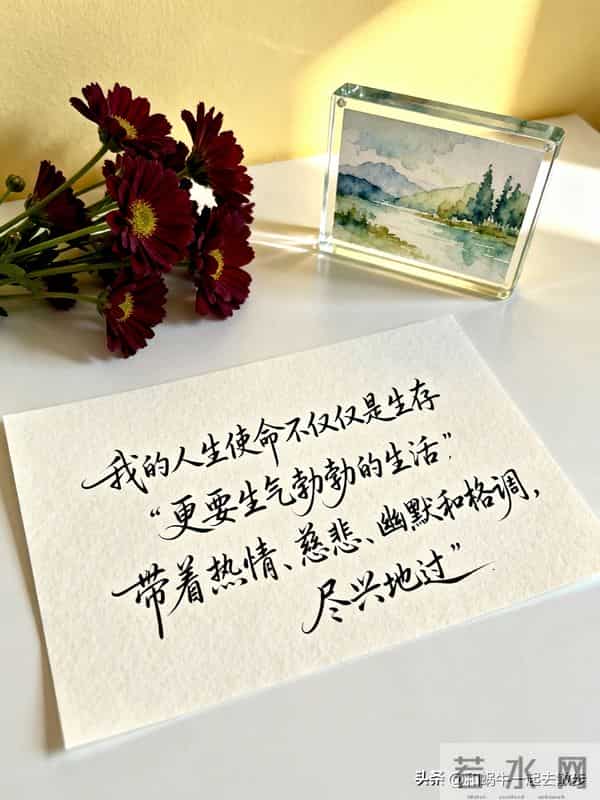 我的人生使命不仅仅是生存
“更要生气勃勃的生活”。
带着热情、慈悲、幽默和格调，
尽兴地过”
若水网
头条 @和蜗牛一起去散步